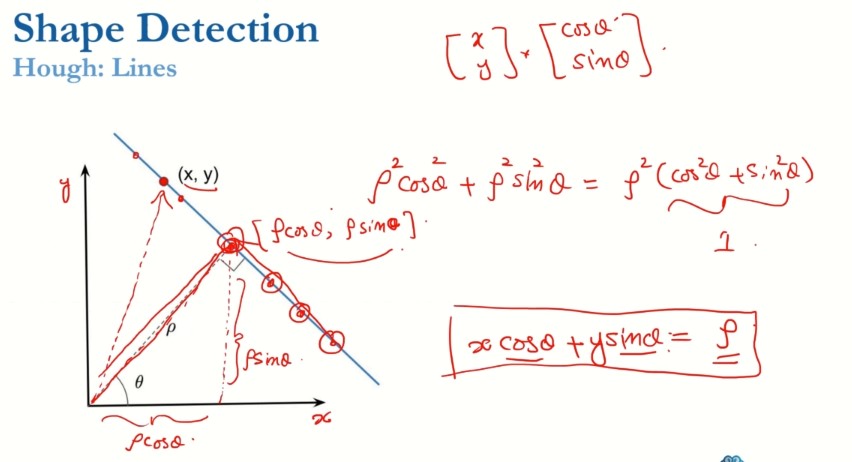 Shape Detection
Hough: Lines
[x y] · [cosθ sinθ].
y
(x, y)
ρ²cos²θ + ρ²sin²θ = ρ²(cos²θ + sin²θ)
1.
[ρcosθ, ρsinθ].
ρ
ρsinθ.
θ
x cosθ + y sinθ = ρ
x
ρcosθ.